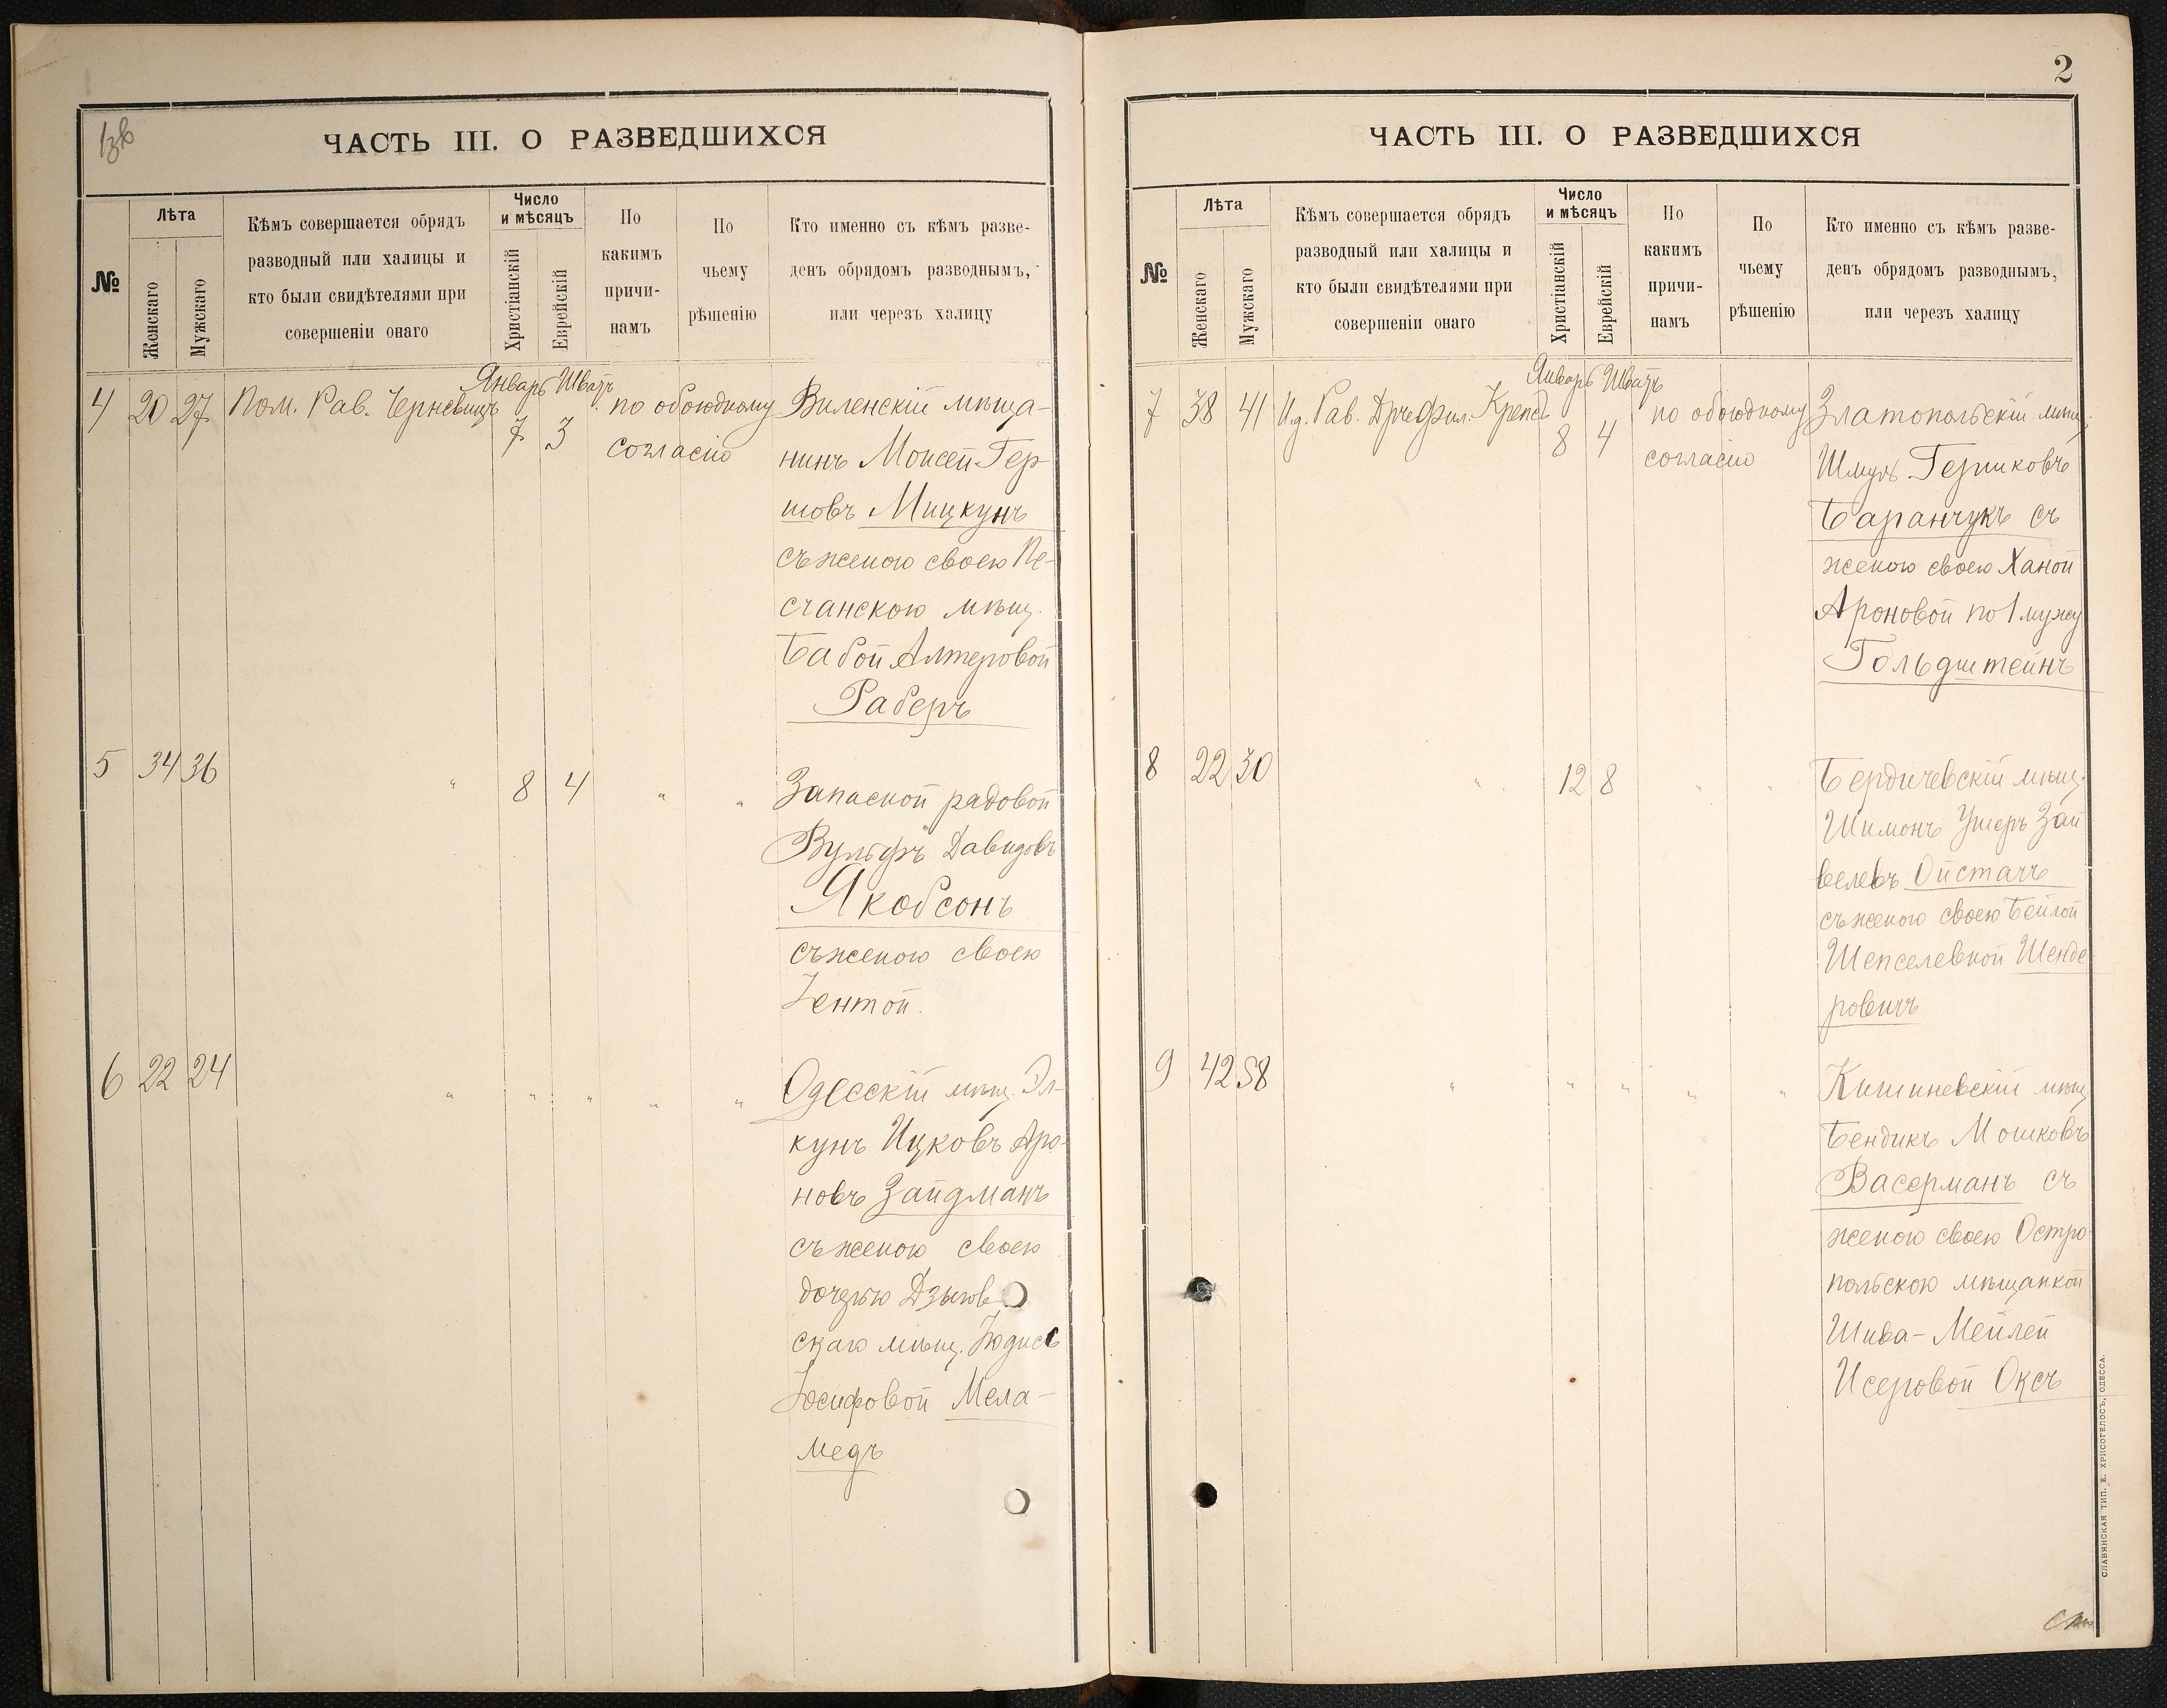 ЧАСТЬ III. О РАЗВЕДШИХСЯ
№
Лѣта
Женскаго
Мужскаго
Кѣмъ совершается обрядъ
разводный или халицы и
кто были свидѣтелями при
совершеніи онаго
Число
и мѣсяцъ
Христіанскій
Еврейскій
По
какимъ
причи-
намъ
По
чьему
рѣшенію
Кто именно съ кѣмъ разве-
денъ обрядомъ разводнымъ,
или черезъ халицу
Январь Шватъ
4 20 27 Пом. Рав. Черневицъ 7 3 по обоюдному
согласію
Виленскій мѣща-
нинъ Моисей-Гер-
шовъ Мицкунъ
съ женою своею Пе-
счанскою мѣщ.
Бабой Алтеровой
Раберъ
5 34 36 " 8 4 " " Запасной рядовой
Вульфъ Давидовъ
Якобсонъ
съ женою своею
Іентой.
6 22 24 " " " " " Одесскій мѣщ. Эл-
кунъ Ицковъ Аро-
новъ Зайдманъ
съ женою своею
дочерью
скаю мѣщ. Юдисъ
Іосифовой Мела-
медъ
2
ЧАСТЬ III. О РАЗВЕДШИХСЯ
№
Лѣта
Женскаго
Мужскаго
Кѣмъ совершается обрядъ
разводный или халицы и
кто были свидѣтелями при
совершеніи онаго
Число
и мѣсяцъ
Христіанскій
Еврейскій
По
какимъ
причи-
намъ
По
чьему
рѣшенію
Кто именно съ кѣмъ разве-
денъ обрядомъ разводнымъ,
или черезъ халицу
Январь Шватъ
7 38 41 И.д. Рав. Крепсъ 8 4 по обоюдному
согласію
Златопольскій мѣщ.
Шмуль Гершковъ
Баранчукъ съ
женою своею Ханой
Ароновой по 1 мужу
Гольдштейнъ
8 22 30 " 12 8 " " Бердичевскій мѣщ.
Шимонъ Ушеръ Зай
велевъ Ойстачъ
съ женою своею Бейлой
Шепселевной Шенде
ровичъ
9 42 58 " " " " " Кишиневскій мѣщ
Бендикъ Мошковъ
Васерманъ съ
женою своею Остро
польскою мѣщанкой
Шива-Мейлей
Исеровой Оксъ
СЛАВЯНСКАЯ ТИП. Е. ХРИСОГЕЛОСЪ, ОДЕССА.